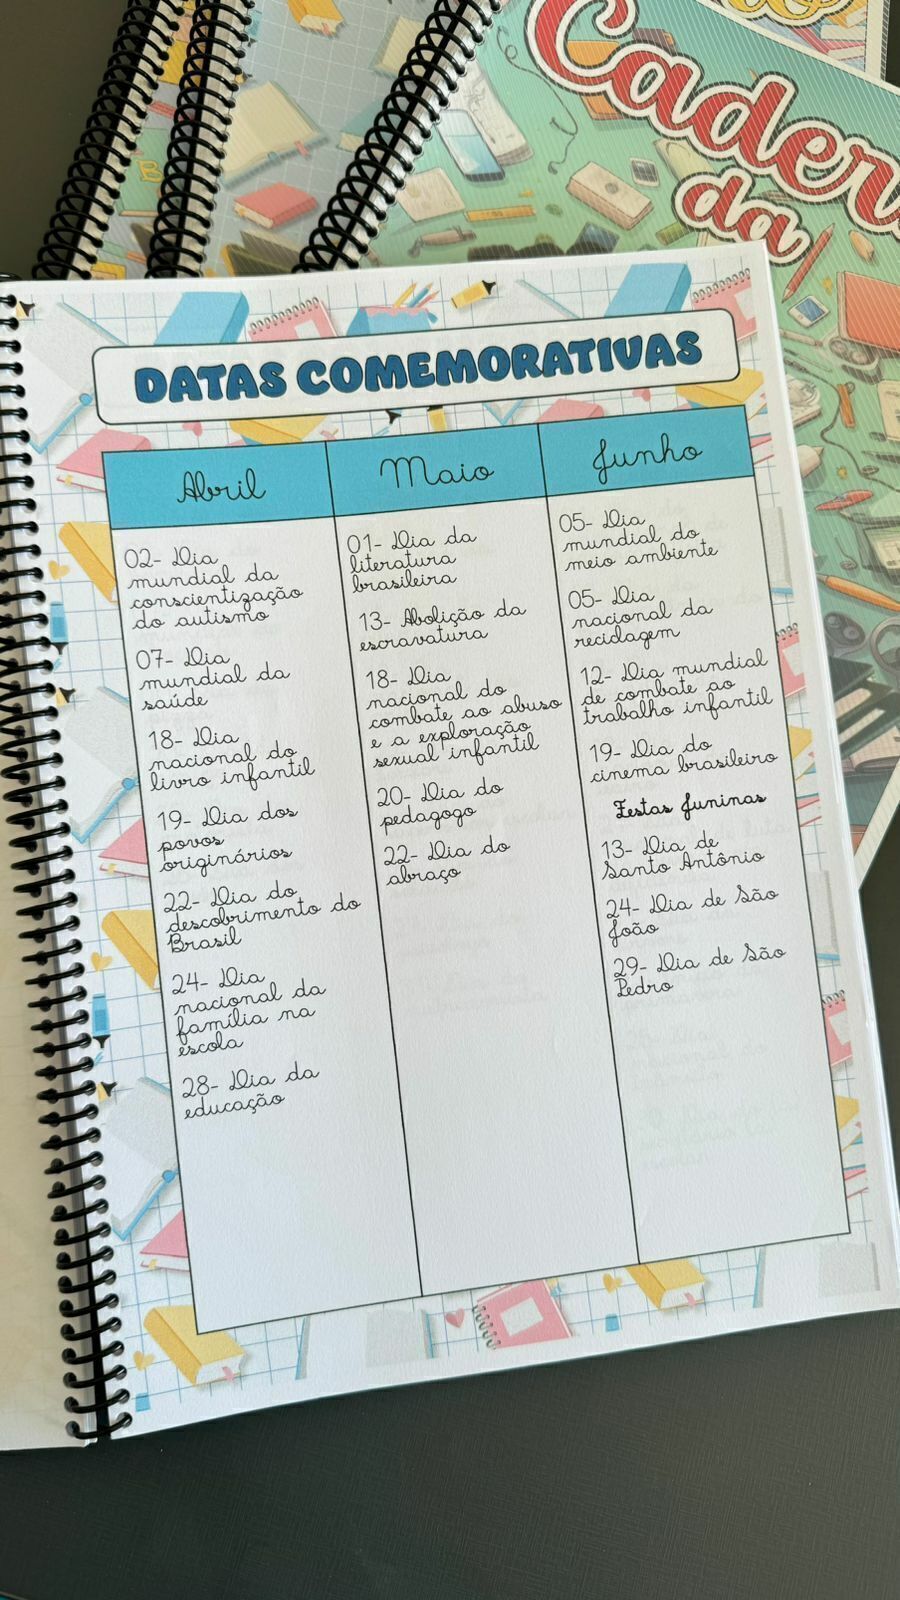 Cadern
da
DATAS COMEMORATIVAS
Abril
02- Dia
mundial da
conscientização
do autismo
07- Dia
mundial da
saúde
18- Dia
nacional do
livro infantil
19- Dia dos
povos
originários
22- Dia do
descobrimento do
Brasil
24- Dia
nacional da
família na
escola
28- Dia da
educação
Maio
01- Dia da
literatura
brasileira
13- Abolição da
escravatura
18- Dia
nacional do
combate ao abuso
e a exploração
sexual infantil
20- Dia do
pedagogo
22- Dia do
abraço
Junho
05- Dia
mundial do
meio ambiente
05- Dia
nacional da
reciclagem
12- Dia mundial
de combate ao
trabalho infantil
19- Dia do
cinema brasileiro
Festas Juninas
13- Dia de
Santo Antônio
24- Dia de São
João
29- Dia de São
Pedro